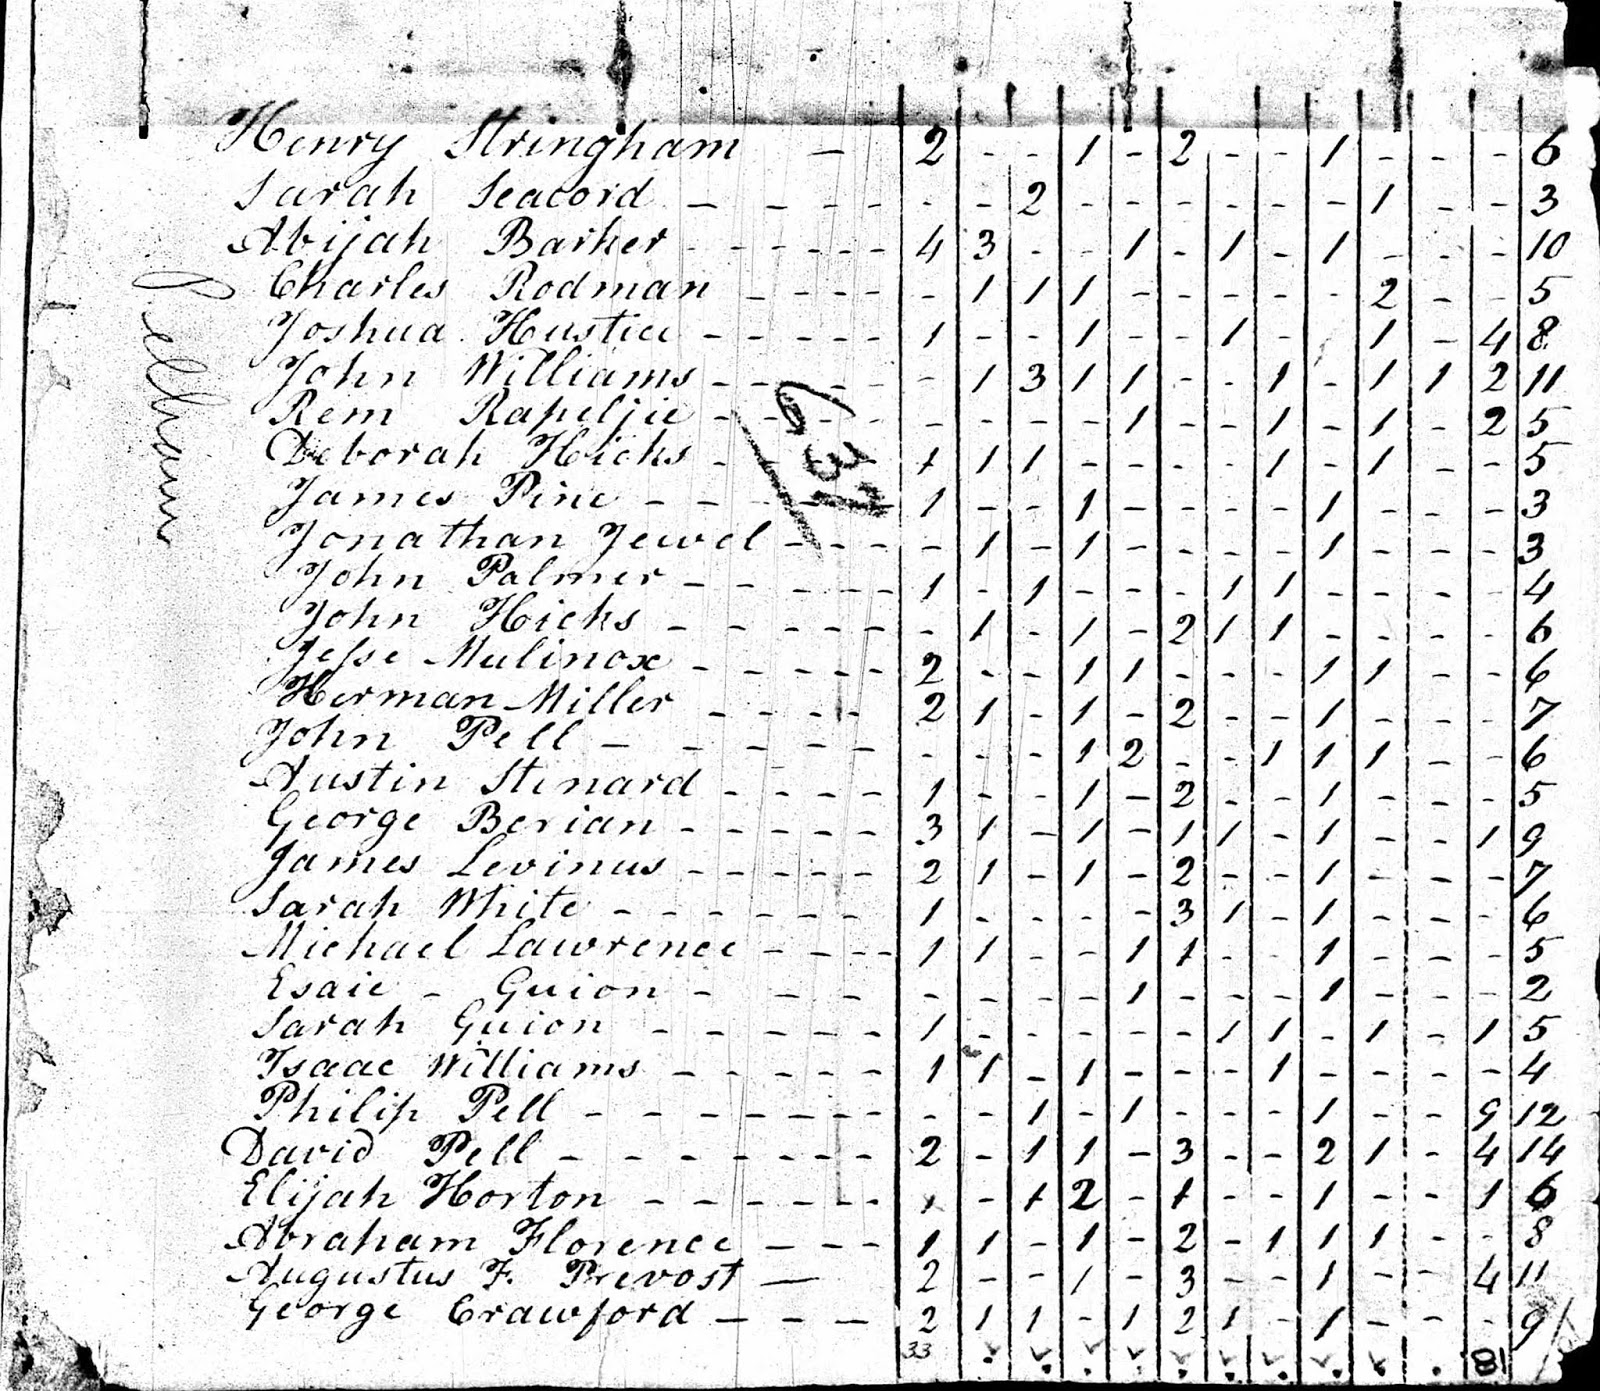 Henry Stringham — 2 - - 1 - 2 - - 1 - - - 6
Sarah Seacord - - - - - - - 2 - - - - - - 1 - - 3
Abijah Barker - - - - - 4 3 - - 1 - 1 - 1 - - - 10
Charles Rodman - - - - - 1 1 1 - - - - - 2 - - 5
Joshua Hustice - - - - - 1 - - 1 - - 1 - 1 - 4 8
John Williams - - - - - - 1 3 1 1 - - 1 - 1 1 2 11
Rem Rapeljie - - - - - - - - 1 - - 1 - 1 - 2 5
Deborah Hicks - 1 1 1 - - - - 1 - 1 - - 5
James Pine - - - 1 - - 1 - - - - 1 - - - 3
Jonathan Jewel - - - - 1 - 1 - - - - 1 - - - 3
John Palmer - - - - - 1 - 1 - - - 1 1 - - - - 4
John Hicks - - - - - - 1 - 1 - 2 1 1 - - - - 6
Jesse Mulinox - - - - - 2 - - 1 1 - - - 1 1 - - 6
Herman Miller - - - - 2 1 - 1 - 2 - - 1 - - - 7
John Pell - - - - - - - - - 1 2 - - 1 1 1 - - 6
Austin Stinard - - - - 1 - - 1 - 2 - - 1 - - - 5
George Berian - - - - - 3 1 - 1 - 1 1 - 1 - - 1 9
James Levinus - - - - - 2 1 - 1 - 2 - - 1 - - - 7
Sarah White - - - - - - 1 - - - - 3 1 - 1 - - - 6
Michael Lawrence - - - - 1 1 - - 1 1 - - 1 - - - 5
Esaie - Guion - - - - - - - - 1 - - - 1 - - - 2
Sarah Guion - - - - - 1 - - - - - 1 1 - 1 - 1 5
Isaac Williams - - - - - 1 1 - 1 - - - 1 - - - - 4
Philip Pell - - - - - - - - - 1 - 1 - - - 1 - - 9 12
David Pell - - - - - - - 2 - 1 1 - 3 - - 2 1 - 4 14
Elijah Horton - - - - - - 1 - 1 2 - 1 - - 1 - - 1 6
Abraham Florence - - - 1 1 - 1 - 2 - 1 1 1 - - 8
Augustus F. Prevost — 2 - - 1 - 3 - - 1 - - 4 11
George Crawford - - - - 2 1 1 - 1 2 1 - 1 - - - 9
33 81
Pelham
637